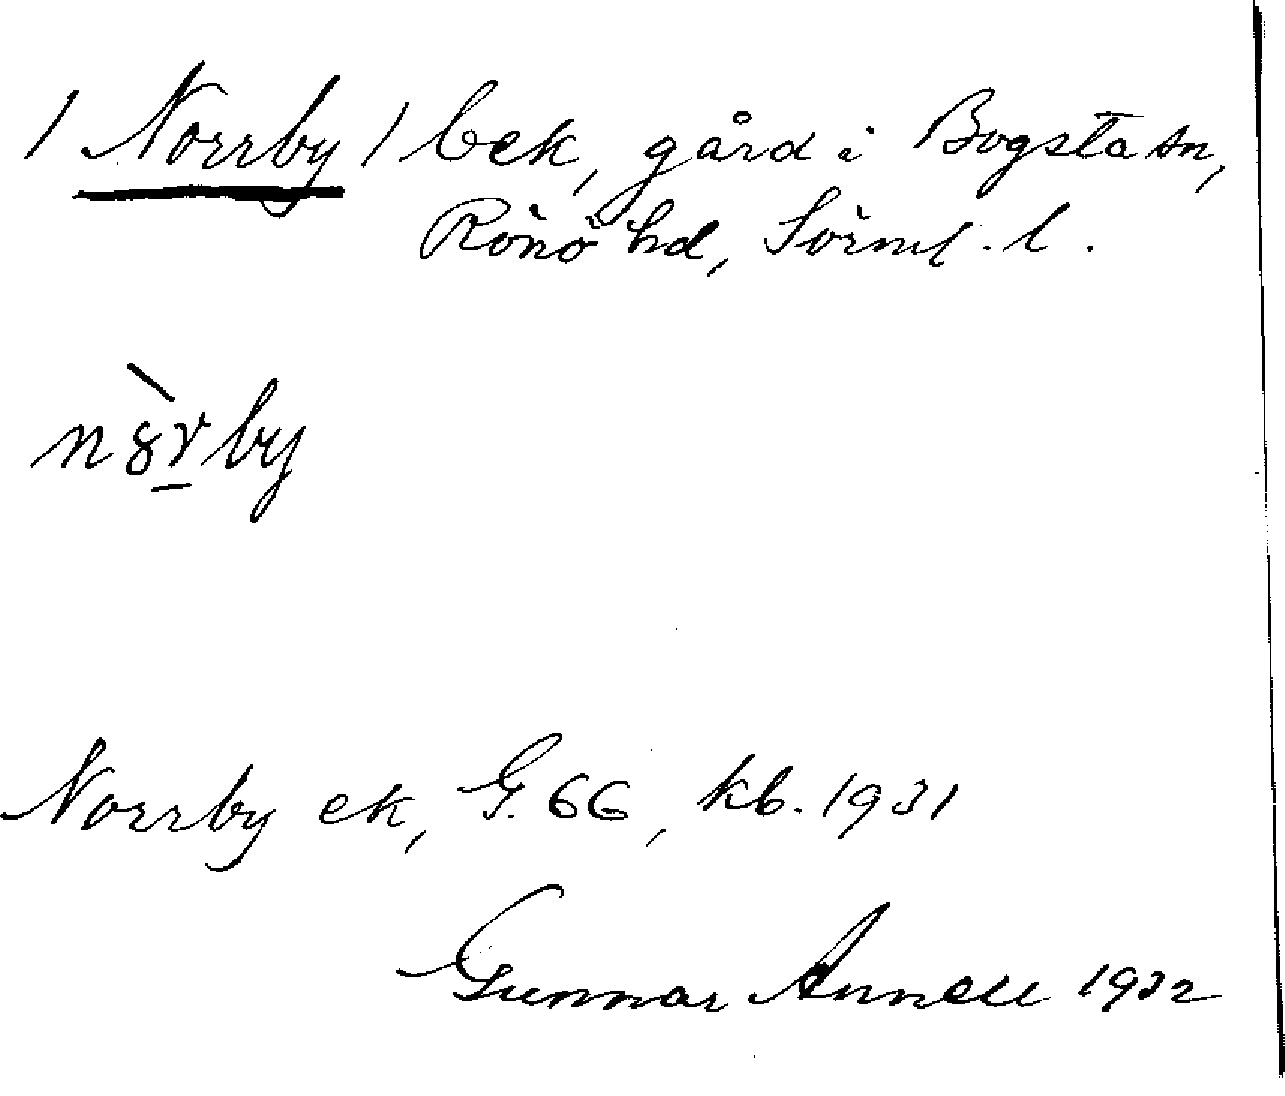 / Norrby / bek, gård i Bogsta sn,
Rönö hd, Sörml. l.
n8̀r̲by
Norrby ek, G. 66, kb. 1931
Gunnar Annell 1932